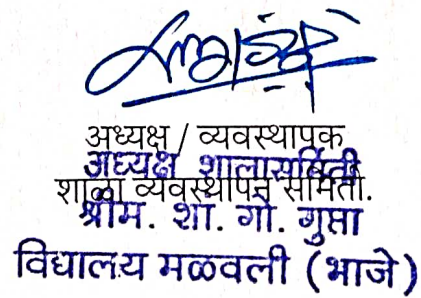 अध्यक्ष / व्यवस्थापक
अध्यक्ष शालासमिती
शाळा व्यवस्थापन समिती.
श्रीम. शां. गो. गुप्ता
विद्यालय मळवली (भाजे)